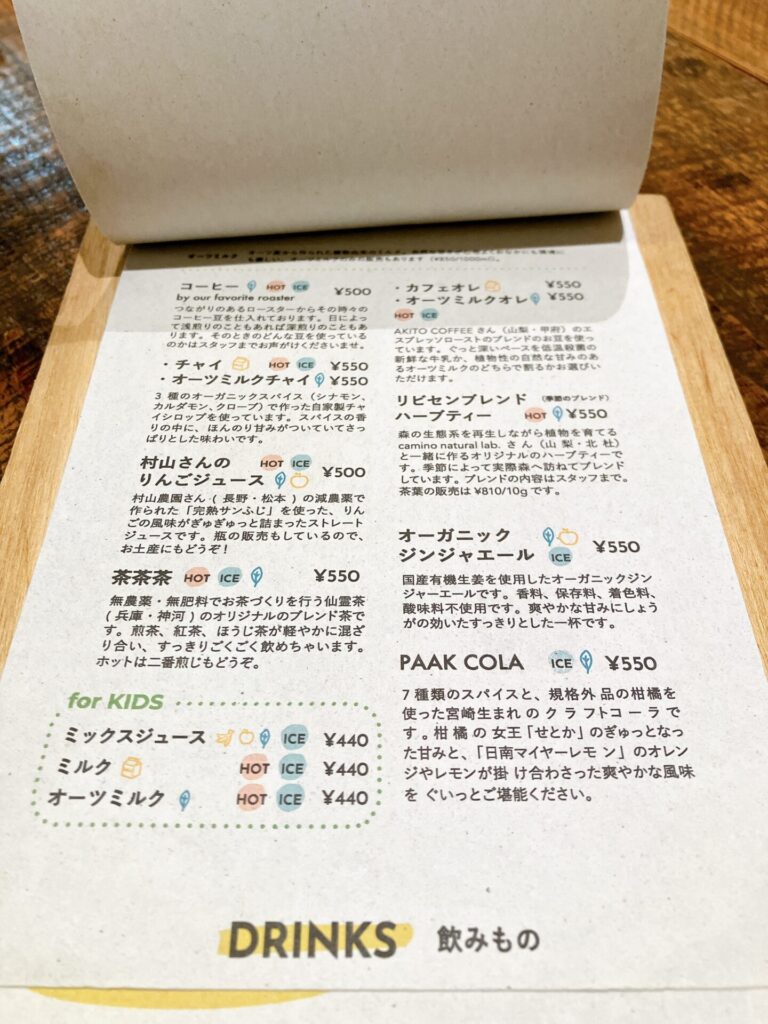 オーツミルク
コーヒー HOT ICE ¥500
by our favorite roaster
つながりのあるロースターからその時々の
コーヒー豆を仕入れております。日によっ
て浅煎りのこともあれば深煎りのこともあ
ります。そのときのどんな豆を使っている
のかはスタッフまでお声がけくださいませ。
・チャイ HOT ICE ¥550
・オーツミルクチャイ ¥550
3 種のオーガニックスパイス（シナモン、
カルダモン、クローブ）で作った自家製チャ
イシロップを使っています。スパイスの香
りの中に、ほんのり甘みがついていてさっ
ぱりとした味わいです。
村山さんの HOT ICE
りんごジュース ¥500
村山農園さん ( 長野・松本 ) の減農薬で
作られた「完熟サンふじ」を使った、りん
ごの風味がぎゅぎゅっと詰まったストレート
ジュースです。瓶の販売もしているので、
お土産にもどうぞ！
茶茶茶 HOT ICE ¥550
無農薬・無肥料でお茶づくりを行う仙霊茶
( 兵庫・神河 ) のオリジナルのブレンド茶で
す。煎茶、紅茶、ほうじ茶が軽やかに混ざ
り合い、すっきりごくごく飲めちゃいます。
ホットは二番煎じもどうぞ。
for KIDS
ミックスジュース ICE ¥440
ミルク HOT ICE ¥440
オーツミルク HOT ICE ¥440
・カフェオレ ¥550
・オーツミルクオレ ¥550
HOT ICE
AKITO COFFEE さん（山梨・甲府）のエ
スプレッソローストのブレンドのお豆を使っ
ています。ぐっと深いベースを低温殺菌の
新鮮な牛乳か、植物性の自然な甘みのあ
るオーツミルクのどちらで割るかお選びい
ただけます。
リビセンブレンド （季節のブレンド）
ハーブティー HOT ¥550
森の生態系を再生しながら植物を育てる
camino natural lab. さん（山梨・北杜）
と一緒に作るオリジナルのハーブティーで
す。季節によって実際森へ訪ねてブレンド
しています。ブレンドの内容はスタッフまで。
茶葉の販売は ¥810/10g です。
オーガニック
ジンジャエール ICE ¥550
国産有機生姜を使用したオーガニックジン
ジャーエールです。香料、保存料、着色料、
酸味料不使用です。爽やかな甘みにしょう
がの効いたすっきりとした一杯です。
PAAK COLA ICE ¥550
7 種類のスパイスと、規格外品の柑橘を
使った宮崎生まれのクラフトコーラで
す。柑橘の女王「せとか」のぎゅっとなっ
た甘みと、「日南マイヤーレモン」のオレン
ジやレモンが掛け合わさった爽やかな風味
をぐいっとご堪能ください。
DRINKS 飲みもの